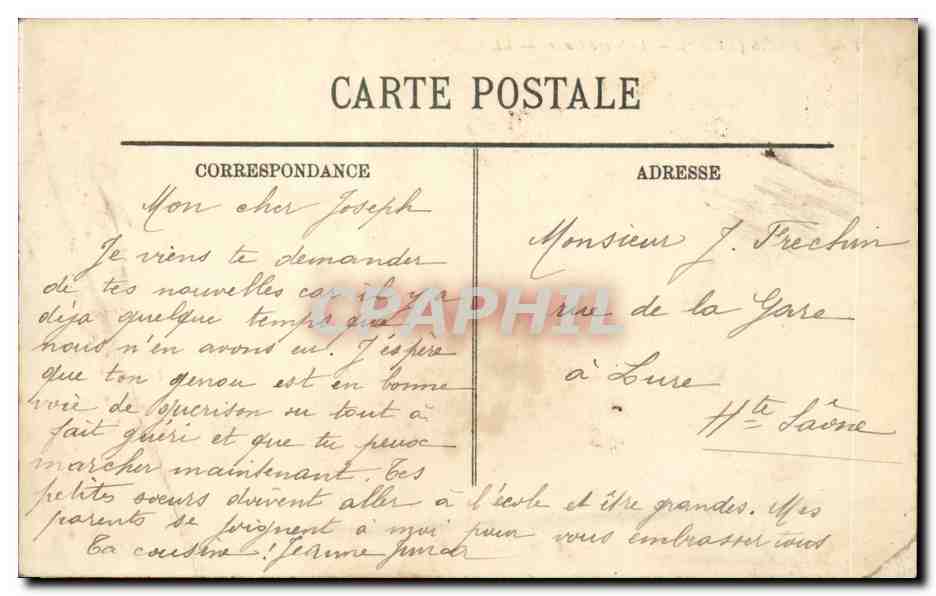 CARTE POSTALE
CORRESPONDANCE
Mon cher Joseph
Je viens te demander
de tes nouvelles car il y a
déja quelque temps que
nous n'en avons eu. J'éspère
que ton genou est en bonne
voie de guerison ou tout à
fait guéri et que tu peux
marcher maintenant. Tes
petites soeurs doivent aller à l'école et être grandes. Mes
parents se joignent à moi pour vous embrasser tous
Ta cousine ! Jeanne
ADRESSE
Monsieur J. Frechin
rue de la Gare
à Lure
Hte Saône
CPAPHIL